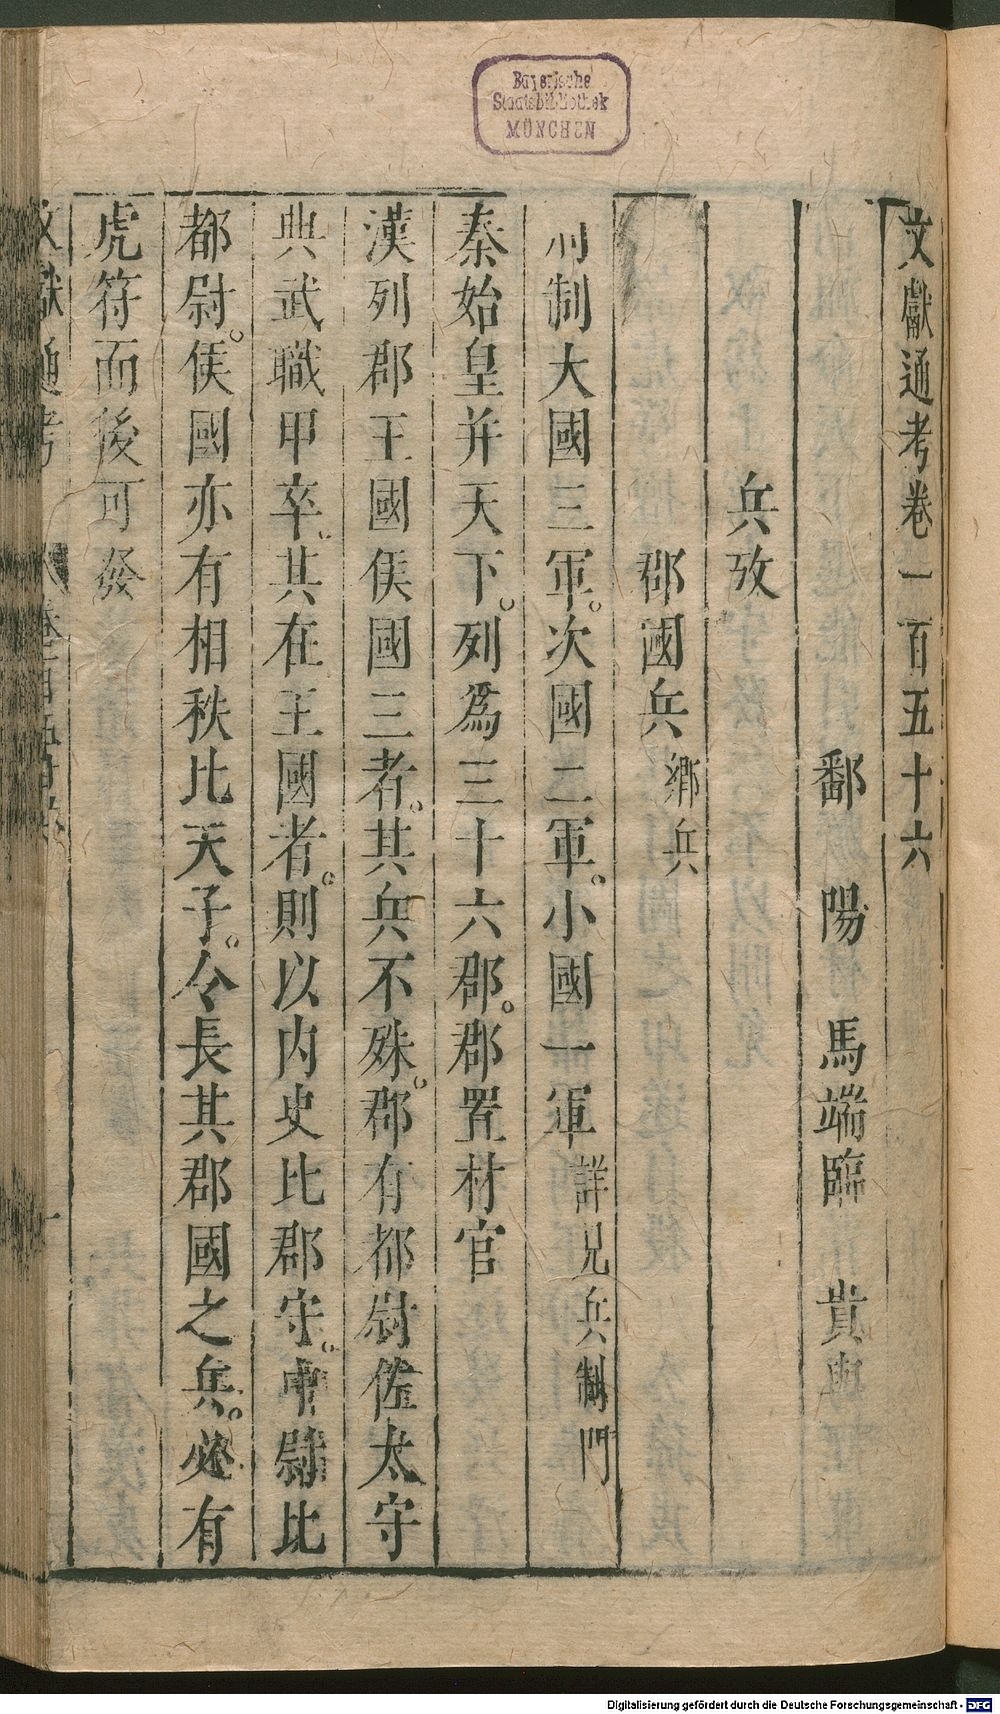 Bayerische
Staatsbibliothek
MÜNCHEN
文獻通考卷一百五十六
鄱陽馬端臨貴與
兵攷
郡國兵鄉兵
制大國三軍。次國二軍。小國一軍詳見兵制門
秦始皇并天下。列爲三十六郡。郡置材官
漢列郡王國侯國三者。其兵不殊。郡有都尉佐太守
典武職甲卒。其在王國者。則以内史比郡守。中尉比
都尉。侯國亦有相秩比天子。令長其郡國之兵。必有
虎符而後可發
文獻通考
Digitalisierung gefördert durch die Deutsche Forschungsgemeinschaft - DFG